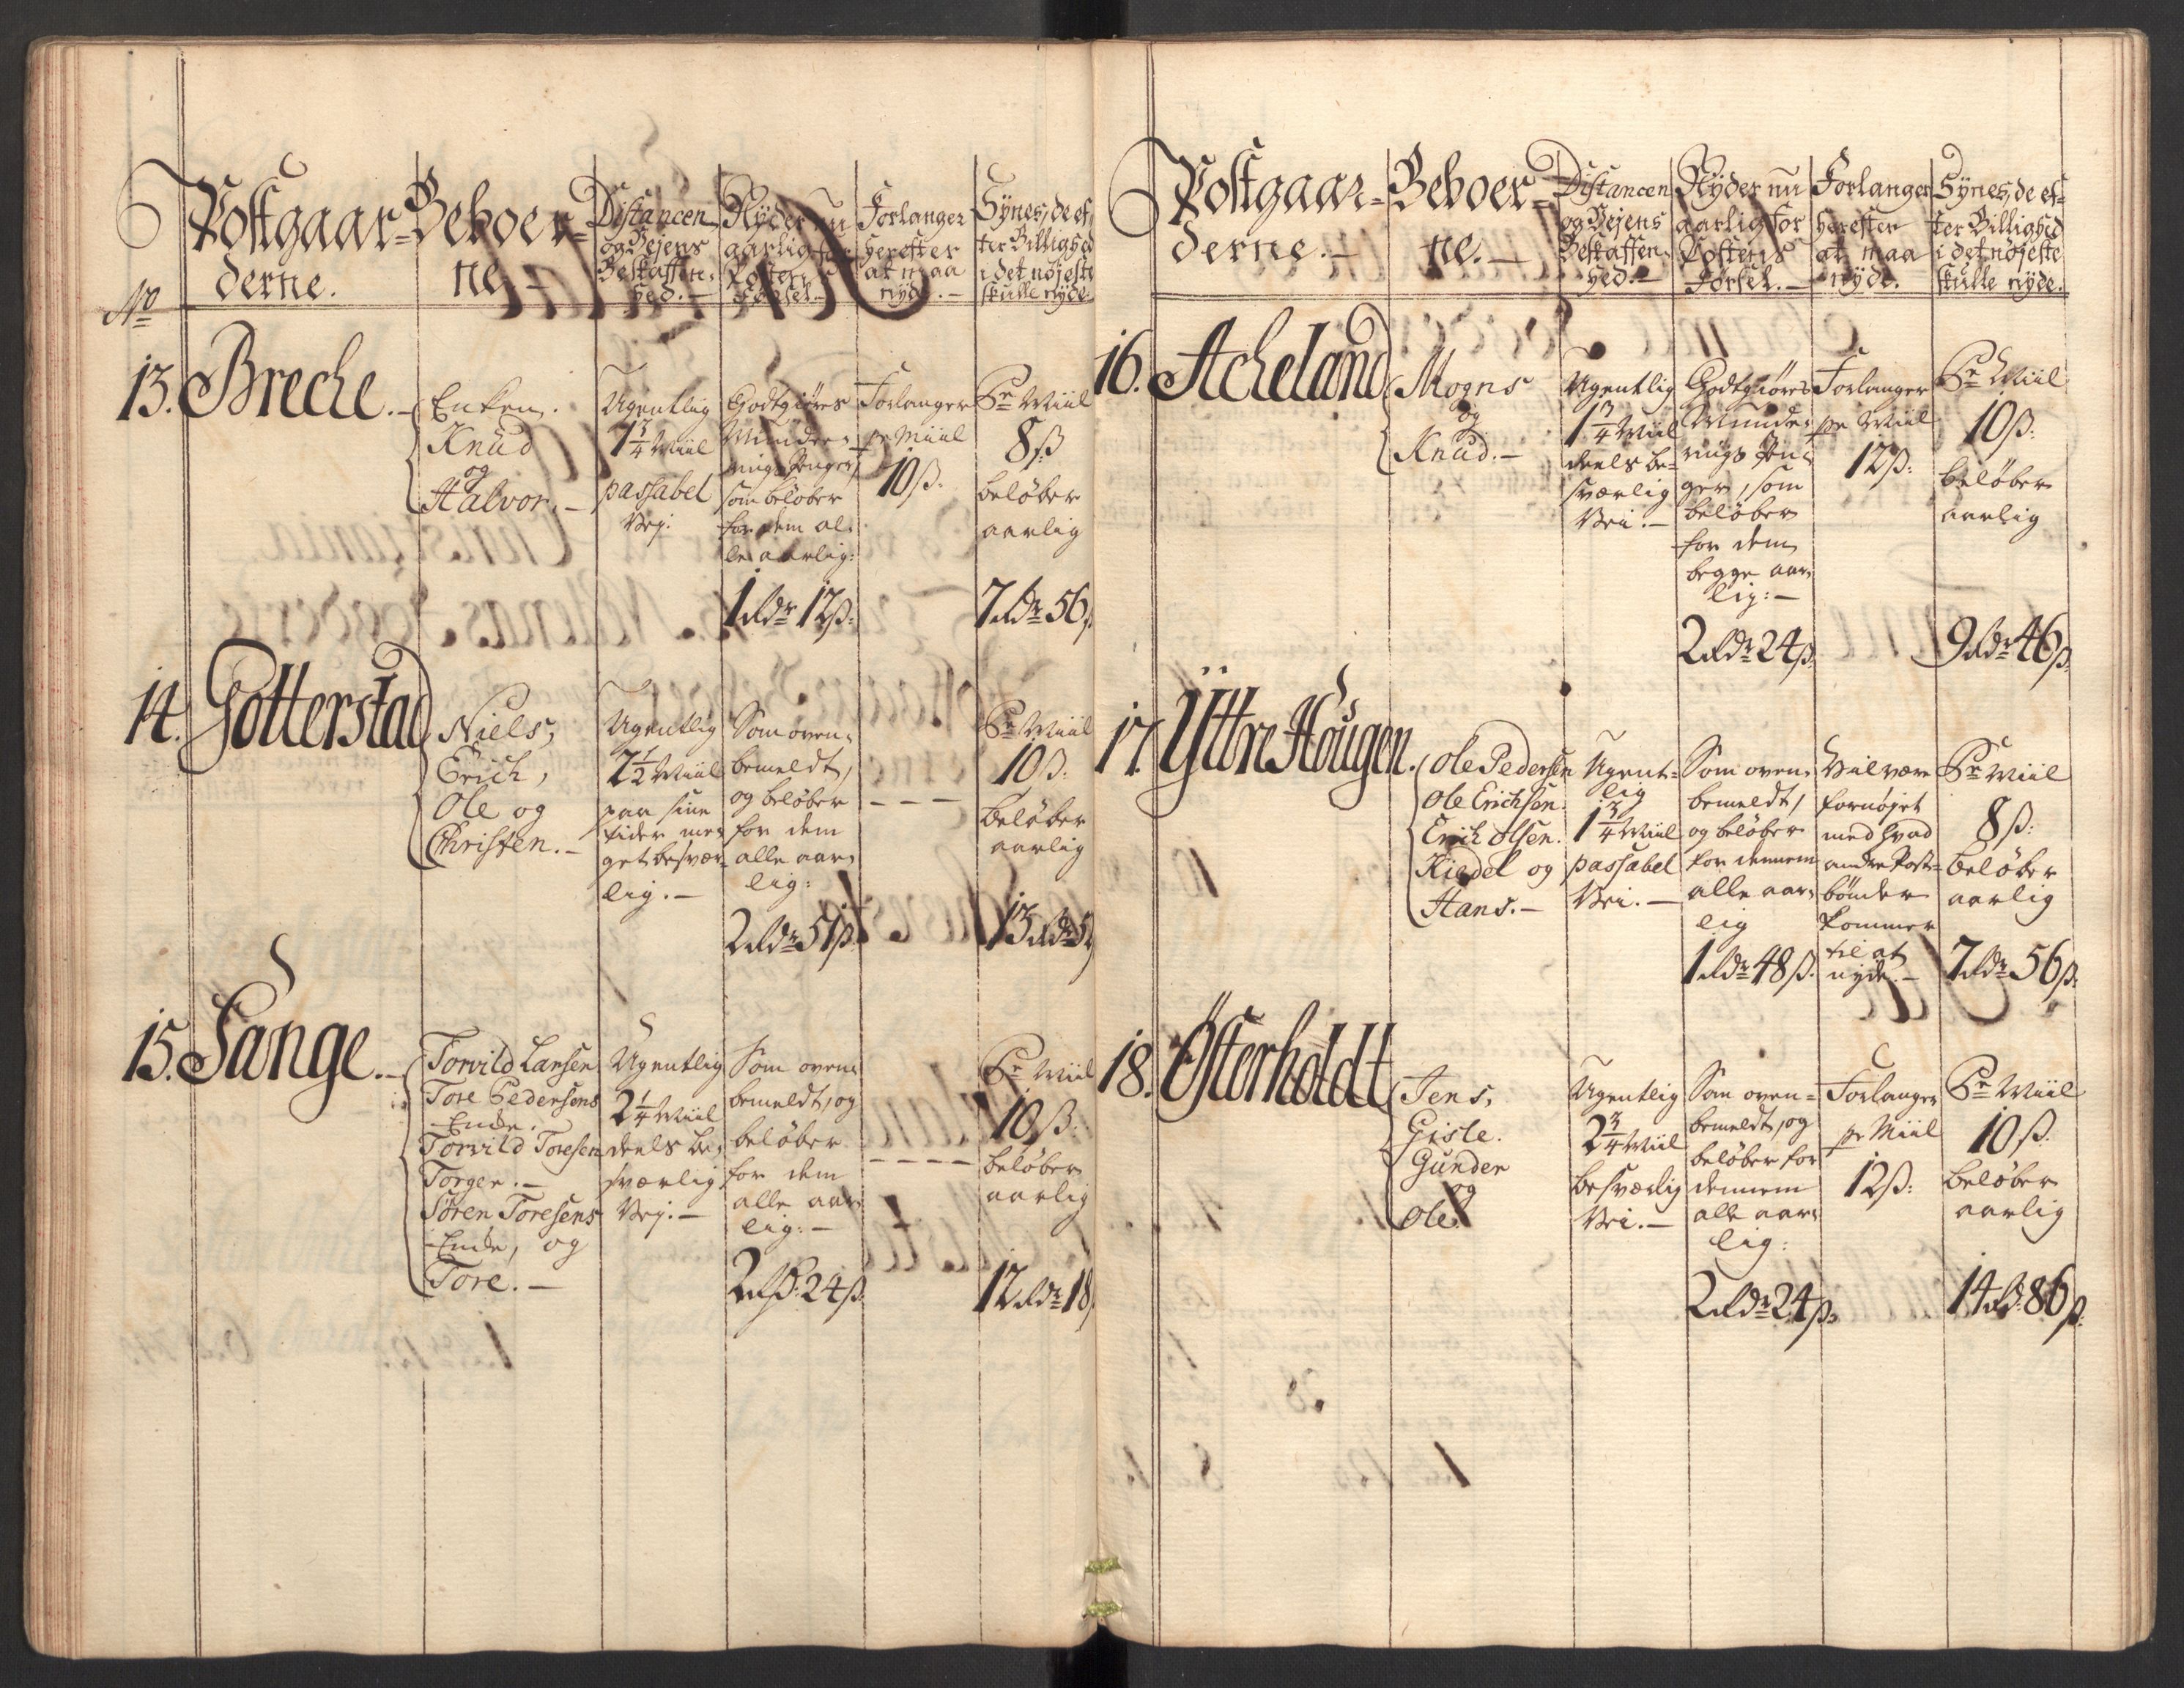 Postgaar-
derne.
Beboer-
ne.-
Distancen
og Vejens
Beskaffen-
hed.-
Nyder nu
aarlig for
Postens
Førsel.-
Forlanger
herefter
at maa
nyde.-
Synes, de ef-
ter Billighed
i det nøjeste
skulle nyde.
No
13. Breche.-
Enken.
Knud
og
Halvor.-
Ugentlig
1 3/4 Miil
passabel
Vej.
Godtgiøres
Munde-
rings Penger,
som beløber
for dem al-
le aarlig:
1 Rdr 12 ß.
Forlanger
pr Miil
10 ß.
Pr Miil
8 ß
beløber
aarlig
7 Rdr 56 ß
14. Gotterstad
Niels,
Erich,
Ole og
Christen.-
Ugentlig
2 1/2 Miil
paa sine
tider me-
get besvær-
lig.-
Som oven-
bemeldt,
og beløber
for dem
alle aar-
lig:
2 Rdr 51 ß.
- - - -
Pr Miil
10 ß.
beløber
aarlig
13 Rdr 5
15. Sange.-
Torvild Larsen
Tore Pedersens
Enke.
Torvild Toresen
Torger.-
Søren Toresens
Enke, og
Tore.-
Ugentlig
2 1/4 Miil
deels be-
sværlig
Vej.-
Som oven-
bemeldt, og
beløber
for dem
alle aar-
lig:-
2 Rd 24 ß.
- - - -
Pr Miil
10 ß.
beløber
aarlig
12 Rdr 18
Postgaar-
derne.-
Beboer-
ne.-
Distancen
og Vejens
Beskaffen-
hed.-
Nyder nu
aarlig for
Postens
Førsel.-
Forlanger
herefter
at maa
nyde.
Synes, de ef-
ter Billighed
i det nøjeste
skulle nyde.
16. Acheland
Mogns
og
Knud.-
Ugentlig
1 3/4 Miil
deels be-
sværlig
Vei.-
Godtgiøres
Munde-
rings Pen-
ger, som
beløber
for dem
begge aar-
lig:-
2 Rdr 24 ß.
Forlanger
pr Miil
12 ß.
Pr Miil
10 ß.
beløber
aarlig
9 Rdr 46 ß.
17. Yttre Hougen.
Ole Pedersen
Ole Erichsen.
Erich Olsen.
Kiedel og
Hans.-
Ugent-
lig
1 3/4 Miil
passabel
Vei.-
Som oven-
bemeldt,
og beløber
for dennem
alle aar-
lig
1 Rdr 48 ß.
Vil være
fornøjet
med hvad
andre Post-
bønder
kommer
til at
nyde.-
Pr Miil
8 ß.
beløber
aarlig
7 Rdr 56 ß.
18. Østerholdt
Jens,
Gisle.
Gunder
og
Ole.
Ugentlig
2 3/4 Miil
besværlig
Vei.-
Som oven-
bemeldt, og
beløber for
dennem
alle aar-
lig:
2 Rdr 24 ß.
Forlanger
pr Miil
12 ß.
Pr Miil
10 ß.
beløber
aarlig
14 Rd. 86 ß.